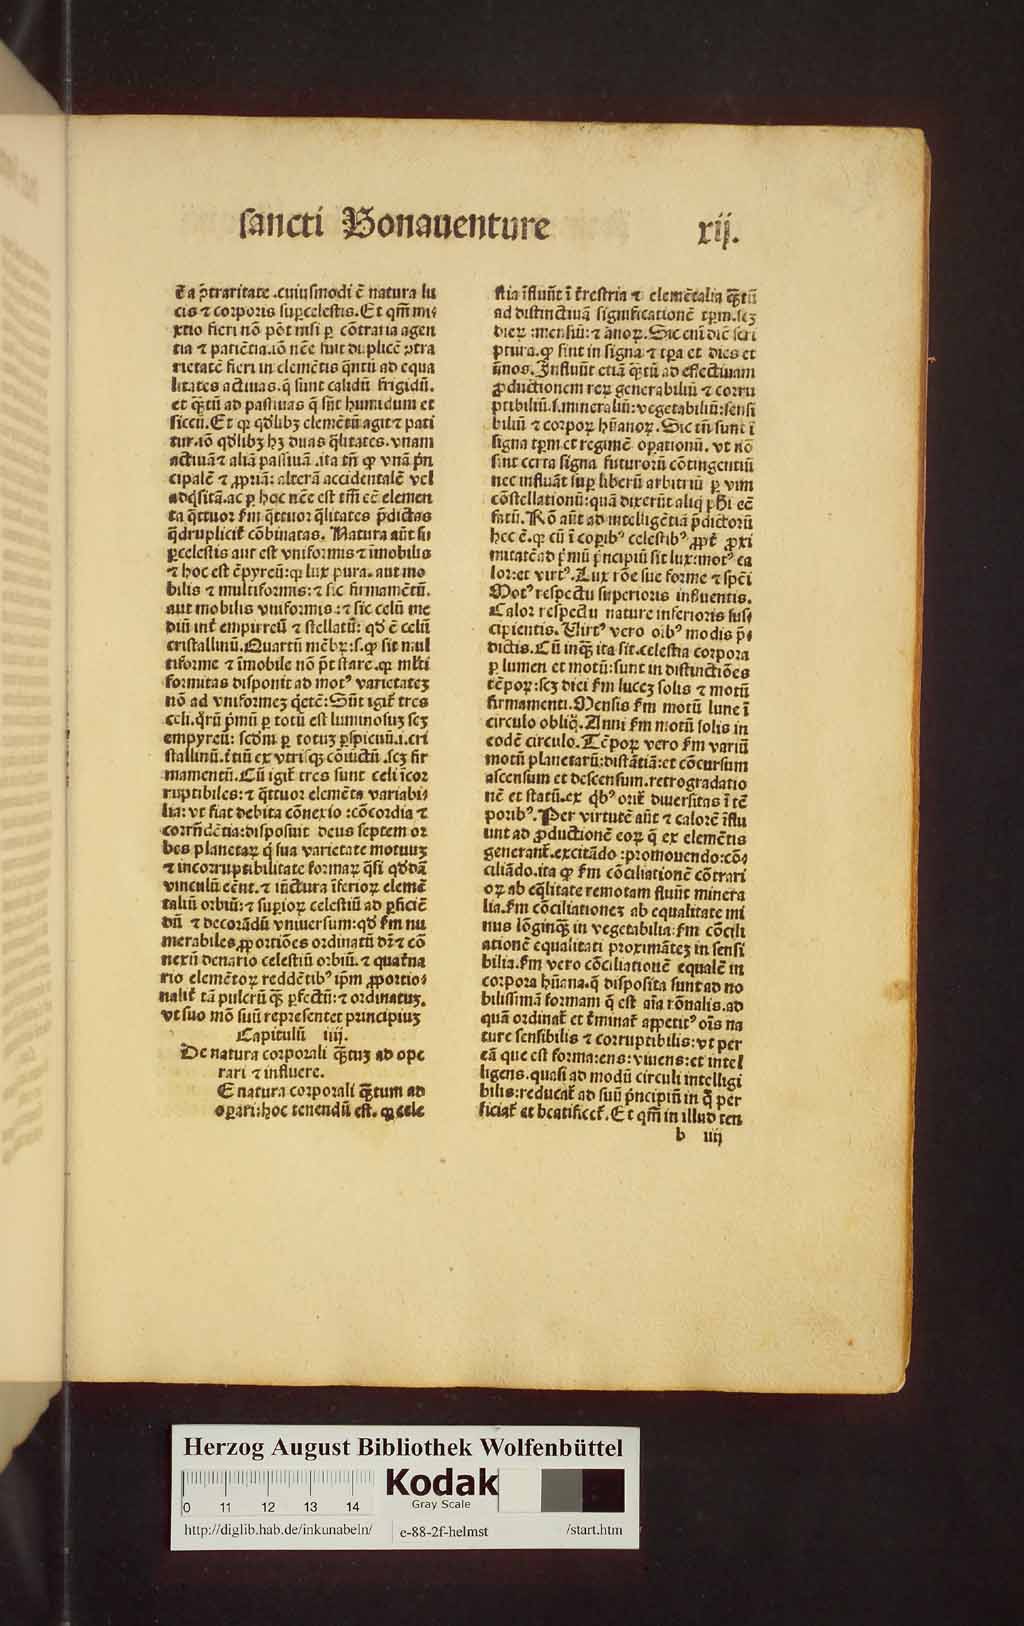 sancti Bonauenture xij.
t̄a ꝯtraritate .cuiusmodi ē natura lu
cis ⁊ corporis suꝑcelestis. Et qm̄ mi⸗
xtio fieri nō pōt nisi ꝑ cōtraria agen
tia ⁊ patiētia.iō nc̄e fuit duplicē ꝯtra
rietatē fieri in elemētis q̄ntū ad equa
litates actiuas.q̄ sunt calidū frigidū.
et qꝫ̄tū ad passiuas q̄ sūt humidum et
siccū. Et qꝛ qd̄libꝫ elemētū agit ⁊ pati
tur.iō qd̄libꝫ hꝫ duas q̄litates.vnam
actiuā ⁊ aliā passiuā .ita tn̄ ꝙ vnā pn̄
cipalē ⁊ ꝓpriā: alterā accidentalē vel
adq̄sitā.ac ꝑ hoc nc̄e est tm̄ eē elemen
ta q̄ttuor ẜm q̄ttuor q̄litates p̄dictas
q̄drupliciṫ cōbinatas. Natura aūt su
ꝑcelestis aut est vniformis ⁊ īmobilis
⁊ hoc est ēpyreū:qꝛ lux pura.aut mo
bilis ⁊ multiformis:⁊ sic firmamētū.
aut mobilis vniformis :⁊ sic celū me
diū int̄ empirreū ⁊ stellatū: qd̄ ē celū
cristallinū.Quartū mēbꝝ:s.ꝙ sit mul
tiforme ⁊ īmobile nō pōt stare.qꝛ mlti
formitas disponit ad motꝰ varietatēꝫ
nō ad vniformeꝫ q̄etē:Sūt igit̄ tres
celi.q̄rū pͥmū ꝑ totū est luminosuꝫ scꝫ
empyreū: scd̄m ꝑ totuꝫ ꝑspicuū.i.cri
stallinū.t̄tiū ex vtrisqꝫ cōiūctū.scꝫ fir
mamentū.Cū igit̄ tres sunt celi īcor
ruptibiles:⁊ q̄ttuor elemēta variabi⸗
lia: vt fiat debita cōnexio :cōcordia ⁊
corrn̄dētia:disposuit deus septem or
bes planetaꝝ q̄ sua varietate motuuꝫ
⁊ incorruptibilitate formaꝝ q̄si qd̄dā
vinculū eēnt.⁊ iūctura īferioꝝ elemē
taliū orbiū:⁊ suꝑioꝝ celestiū ad ꝑficiē
dū ⁊ decorādū vniuersum:qd̄ ẜm nu
merabiles ꝓportiōes ordinatū dr̄ ⁊ cō
nexū denario celestiū orbiū.⁊ quat̄na
rio elemētoꝝ reddētibꝰ ip̄m ꝓportio⸗
naliṫ tā pulcrū qꝫ̄ ꝑfectū:⁊ ordinatuꝫ.
vt suo mō suū representet principiuꝫ
Capitulū iiij.
De natura corporali qꝫ̄tuꝫ ad ope
rari ⁊ influere.
E natura corporali qꝫ̄tum ad
oꝑari:hoc tenendū est. ꝙ cele
stia īfluūt ī t̄restria ⁊ elemētalia qꝫ̄tū
ad distinctiuā significationē tꝑm.scꝫ
dieꝝ :mensiū: ⁊ ānoꝝ. Sic enī diē scri
ptura.ꝙ sint in signa ⁊ tꝑa et dies et
ānos. Influūt etiā qꝫ̄tū ad effectiuam
ꝓductionem reꝝ generabiliū ⁊ corru
ptibiliū.s.mineraliū:vegetabiliū:sensi
biliū ⁊ corpoꝝ hūanoꝝ. Sic tn̄ sunt ī
signa tꝑm et regimē oꝑationū. vt nō
sint certa signa futurorū cōtingentiū
nec influāt suꝑ liberū arbitriū ꝑ vim
cōstellationū:quā dixerūt aliq̄ ph̄i eē
fatū. Rō aūt ad intelligētiā p̄dictorū
hec ē.qꝛ cū ī corꝑibꝰ celestibꝰ ꝓpt̄ ꝓxi
mitatē ad pͥmū pͥncipiū sit lux:motꝰ ca
lor:et virtꝰ.Lux rōe sue forme ⁊ spēi
Motꝰ respectu superioris influentis.
Calor respectu nature inferioris sus⸗
cipientis. Virtꝰ vero oībꝰ modis p̄⸗
dictis.Cū inqꝫ̄ ita sit.celestia corpora
ꝑ lumen et motū:sunt in distinctiōes
tēpoꝝ:scꝫ diei ẜm luceꝫ solis ⁊ motū
firmamenti.Mensis ẜm motū lune ī
circulo obliq̄. Anni ẜm motū solis in
codē circulo. Tēpoꝝ vero ẜm variū
motū planetarū:distātiā:et cōcursum
ascensum et descensum.retrogradatio
nē et statū.ex q̄bꝰ orit̄ diuersitas ī tē
poribꝰ. Per virtutē aūt ⁊ calorē īflu
unt ad ꝓductionē eoꝝ q̄ ex elemētis
generant̄.excitādo :promouendo:cō⸗
ciliādo.ita ꝙ ẜm cōciliationē cōtrari
oꝝ ab eq̄litate remotam fluūt minera
lia.ẜm cōciliationeꝫ ab equalitate mi
nus lōginqꝫ̄ in vegetabilia:ẜm cōcili
ationē equalitati proximāteꝫ in sensi
bilia.ẜm vero cōciliationē equalē in
corpora hūana.q̄ disposita sunt ad no
bilissimā formam q̄ est aīa rōnalis.ad
quā ordinat̄ et t̄minat̄ appetitꝰ oīs na
ture sensibilis ⁊ corruptibilis:vt per
eā que est forma:ens:viuens:et intel
ligens.quasi ad modū circuli intelligi
bilis:reducat̄ ad suū pͥncipiū in q̄ per
ficiat̄ et beatificet̄. Et qm̄ in illud ten
b iiij
Herzog August Bibliothek Wolfenbüttel
Kodak
Gray Scale
0 11 12 13 14
http://diglib.hab.de/inkunabeln/ e-88-2f-helmst /start.htm